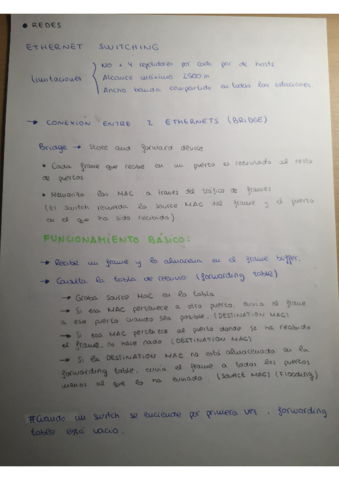 ● REDES
ETHERNET SWITCHING
Limitaciones
No + 4 repetidores por cada par de hosts
Alcance máximo 2500 m
Ancho banda compartido en todas las estaciones
→ CONEXIÓN ENTRE 2 ETHERNETS (BRIDGE)
Bridge → Store and forward device
• Cada frame que recibe en un puerto es reenviado al resto
de puertos
• Memoriza las MAC a través del tráfico de frames
(El switch recuerda la source MAC del frame y el puerto
en el que ha sido recibida)
FUNCIONAMIENTO BÁSICO:
→ Recibe un frame y lo almacena en el frame buffer.
→ Consulta la tabla de reenvío (forwarding table)
→ Graba source MAC en la tabla
→ Si esa MAC pertenece a otro puerto, envía el frame
a ese puerto cuando sea posible. (DESTINATION MAC)
→ Si esa MAC pertenece al puerto donde se ha recibido
el frame, no hace nada (DESTINATION MAC)
→ Si la DESTINATION MAC no está almacenada en la
forwarding table, envía el frame a todos los puertos
menos al que lo ha enviado (SOURCE MAC) (Flooding)
#Cuando un switch se enciende por primera vez, forwarding
table está vacía.